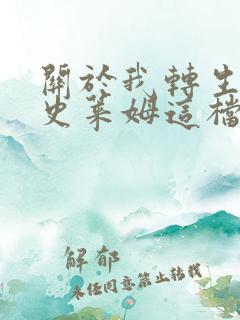 關於我轉生
史萊姆這檔
解郁
未經同意禁止轉載